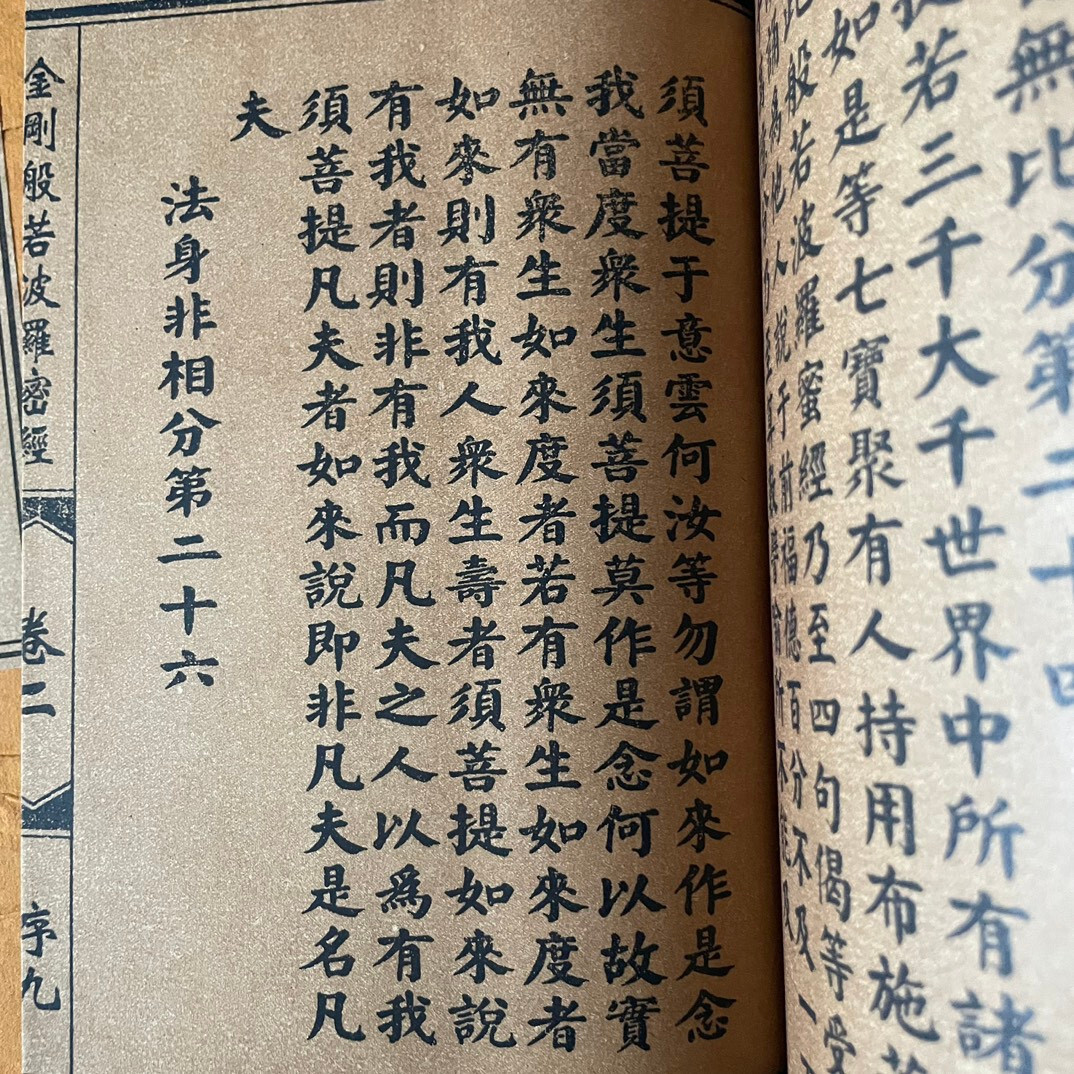 無比分第二十四
提若三千大千世界中所有諸
如是等七寶聚有人持用布施若
此般若波羅蜜經乃至四句偈等受
為他人說于前福德百分不及一
須菩提于意雲何汝等勿謂如來作是念
我當度衆生須菩提莫作是念何以故實
無有衆生如來度者若有衆生如來度者
如來則有我人衆生壽者須菩提如來說
有我者則非有我而凡夫之人以爲有我
須菩提凡夫者如來說即非凡夫是名凡
夫
法身非相分第二十六
金剛般若波羅密經
卷二
序九